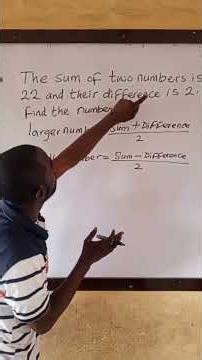 The sum of two numbers is
22 and their difference is 2.
Find the number
larger num = Sum + Difference
2
mber = Sum - Difference
2